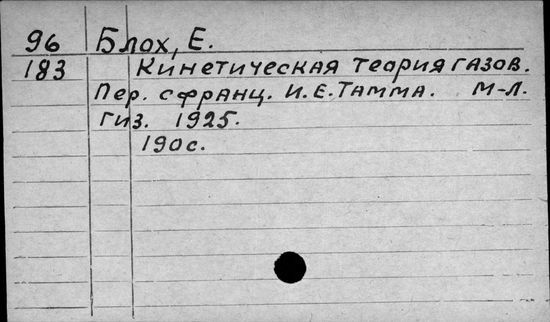 96 Блох, Е.
183 Кинетическая теория газов.
Пер. с франц. И.Е. Тамма. М-Л.
Гиз. 1925.
190 с.